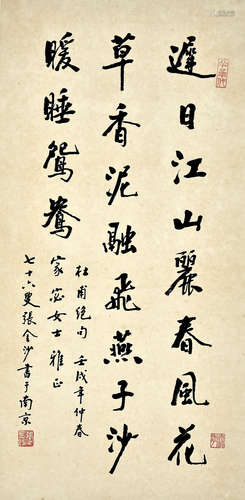 遲日江山麗春風花
草香泥融飛燕子沙
暖睡鴛鴦
杜甫絕句 壬戌年仲春
家宓女士雅正
七十六叟張金沙書于南京